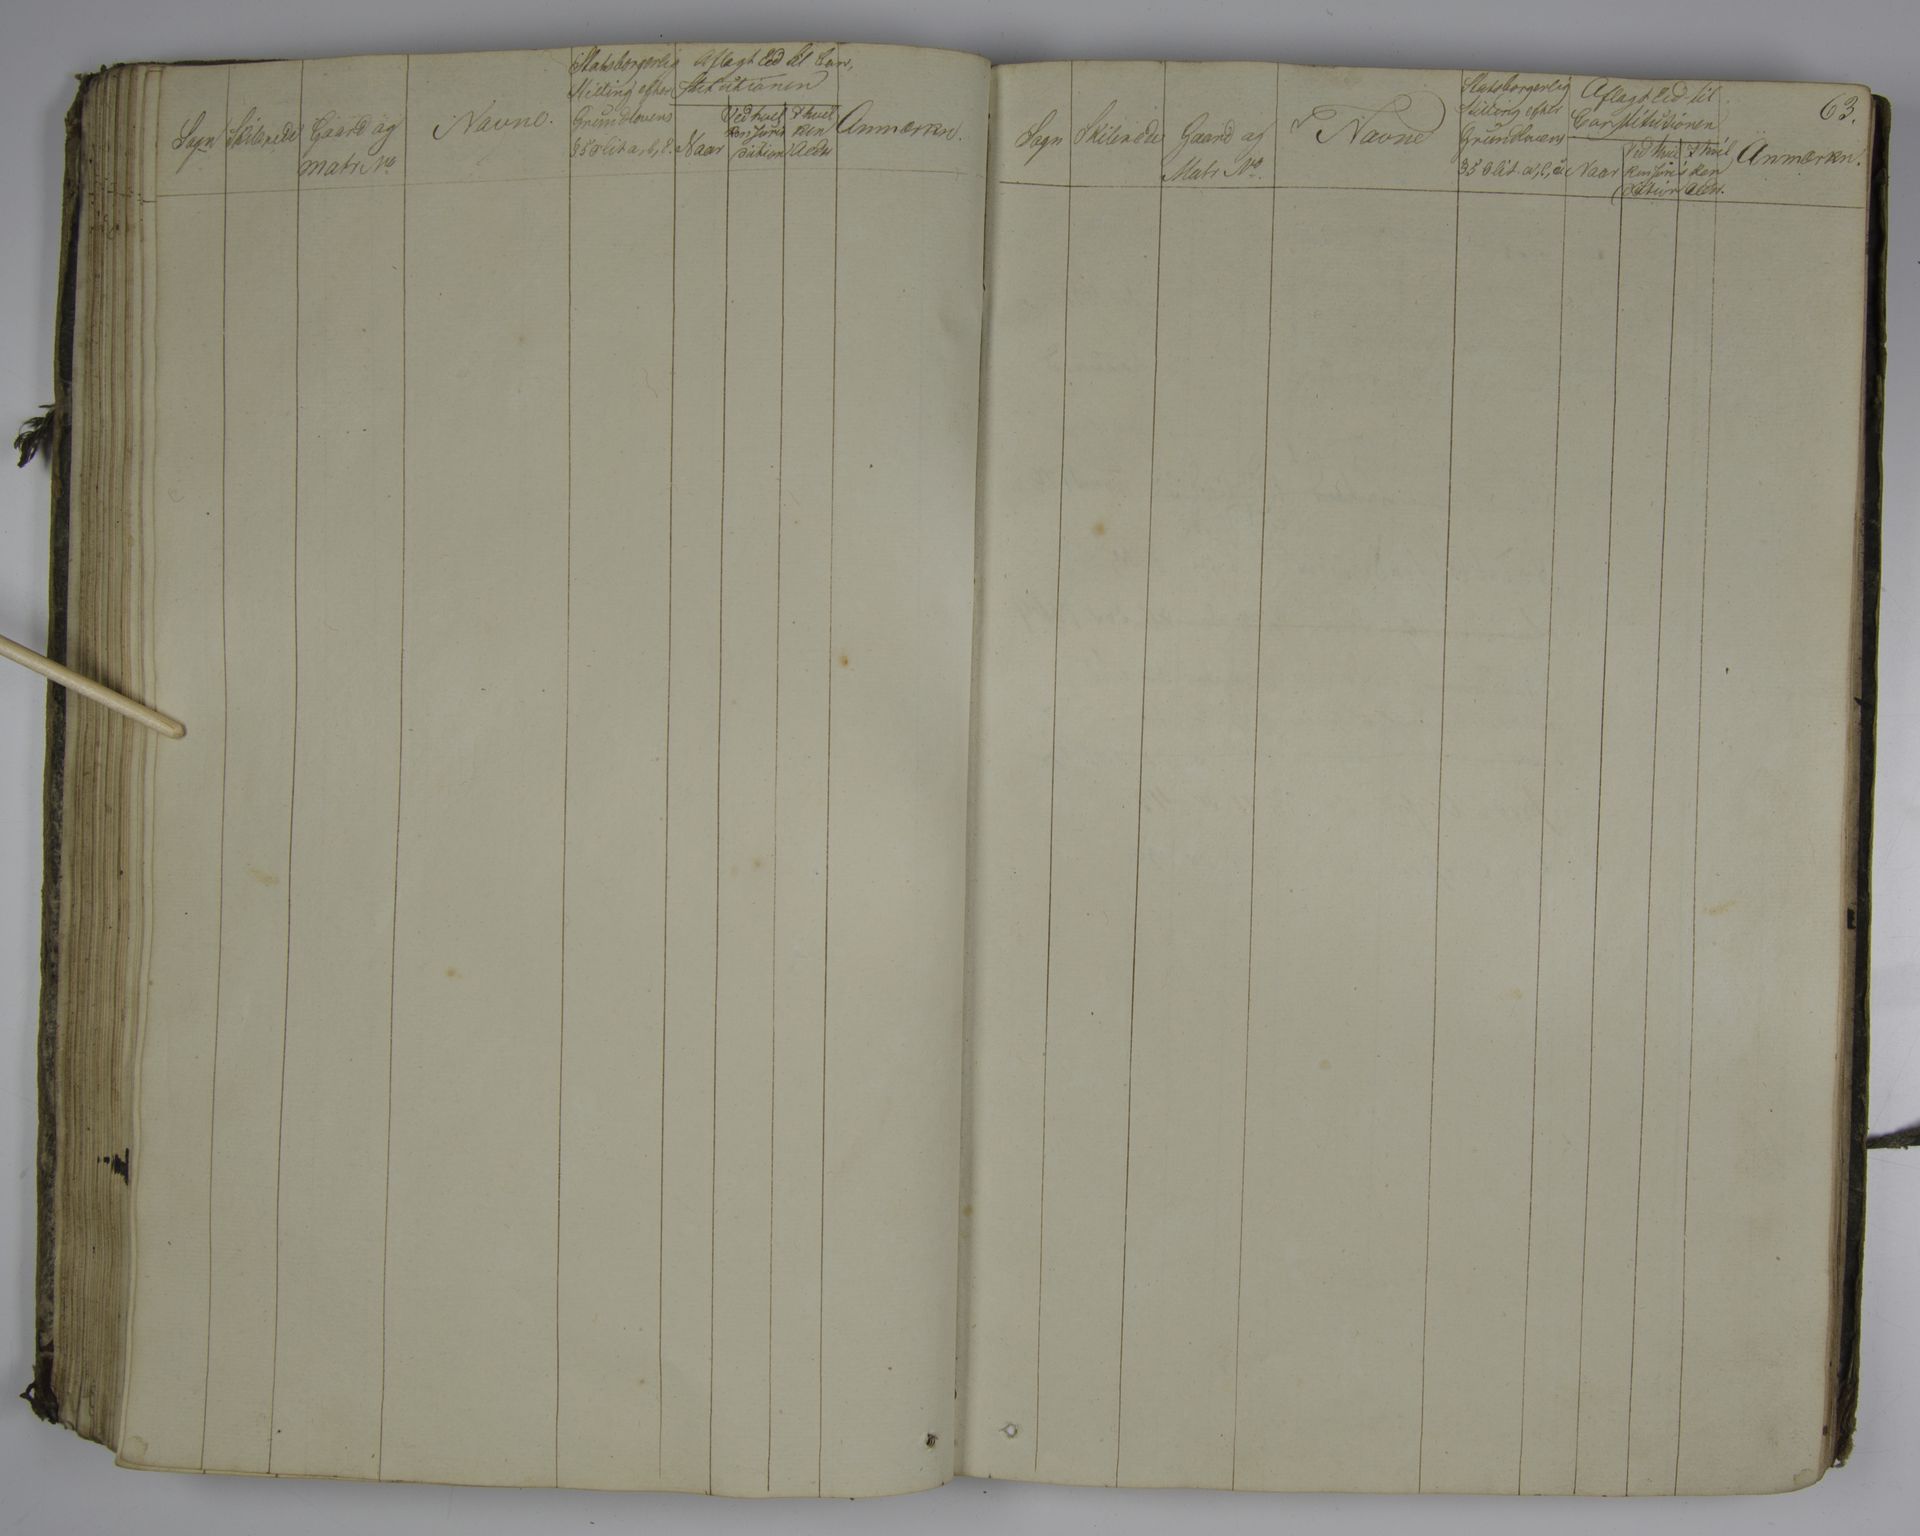 Sogn
Skiltrede
Gaard og
Matr. No
Navne.
Statsborgerlig
Stilling efter
Grundlovens
§ 50 Lit a, b, c.
Aflagt Eed til Con,
stitutionen
Naar
Ved hvil
ken
I hvil
ken
Alder
Anmærkn.
63.
Sogn
Skiltrede
Gaard og
Matr. No.
Navne
Statsborgerlig
Stilling efter
Grundlovens
§ 50 Lit. a, b, c
Aflagt Eed til
Constitutionen
Naar
Ved hvil
ken
I hvil,
ken
Alder.
Anmærkn.